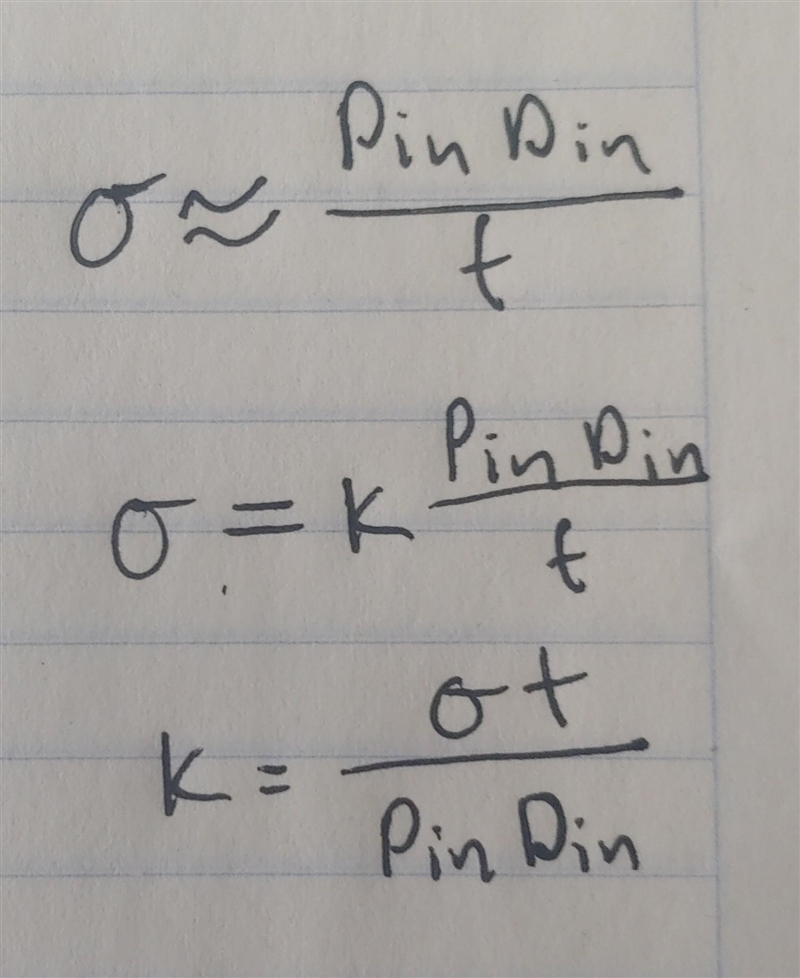 σ ≈ Pin Din / t
σ = K Pin Din / t
K = σ t / Pin Din